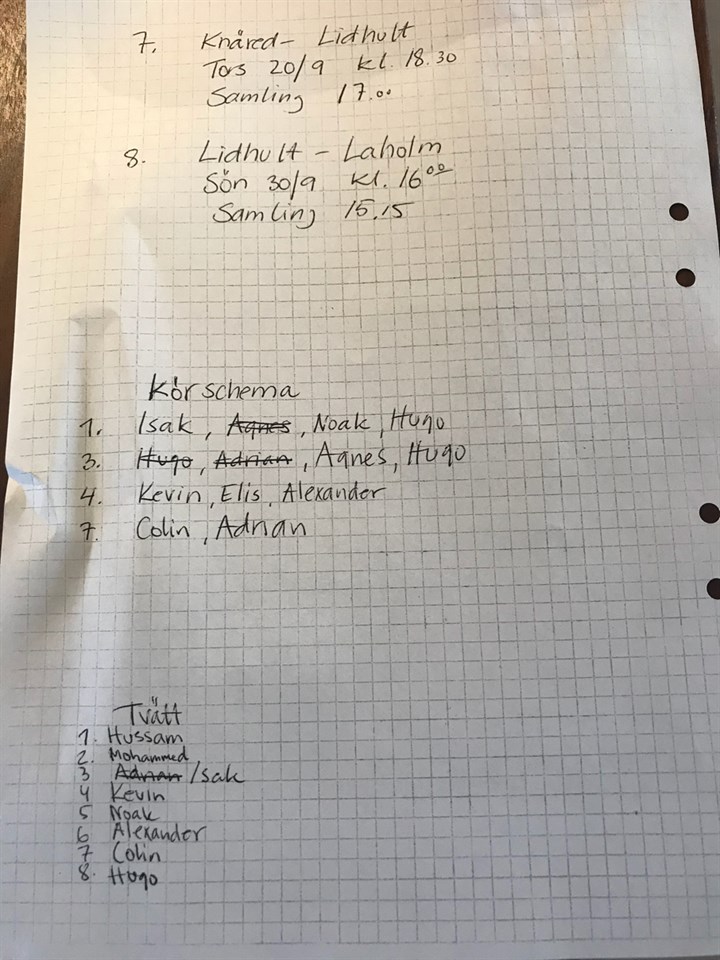 7. Knåred - Lidhult
Tors 20/9 kl. 18.30
Samling 17.00
8. Lidhult - Laholm
Sön 30/9 kl. 16.00
Samling 15.15
Körschema
1. Isak, Agnes, Noak, Hugo
3. Hugo, Adrian, Agnes, Hugo
4. Kevin, Elis, Alexander
7. Colin, Adrian
Tvätt
1. Hussam
2. Mohammed
3 Adrian / Isak
4 Kevin
5 Noak
6 Alexander
7 Colin
8. Hugo